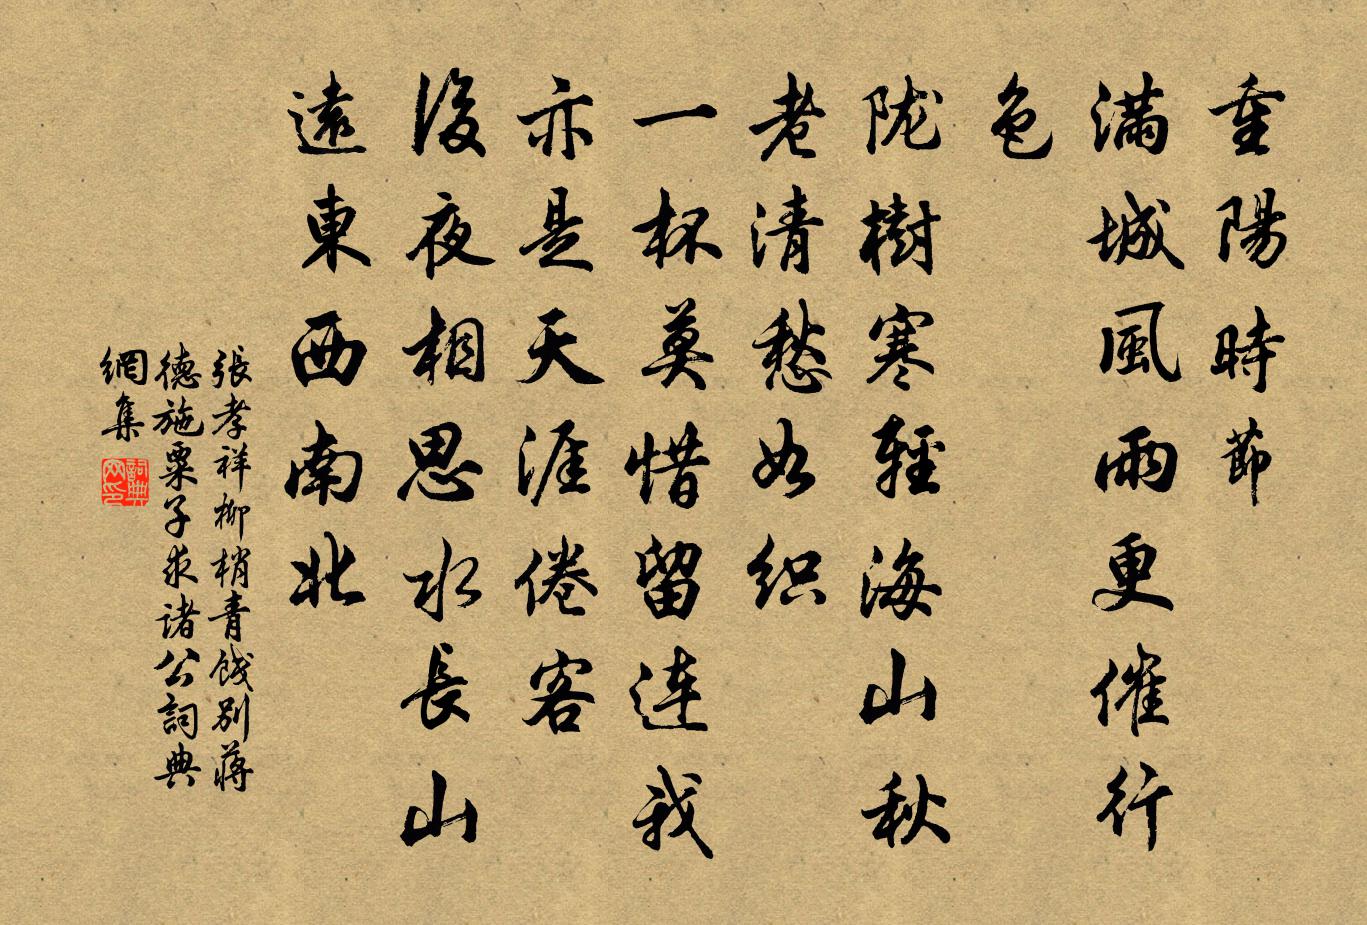 重陽時節
滿城風雨更催行
色
陇樹寒輕海山秋
老清愁如织
一杯莫惜留連我
亦是天涯倦客
後夜相思水長山
遠東西南北
張孝祥柳梢青餞別蔣
德施粟子求諸公詞典
網集
詞典
网印